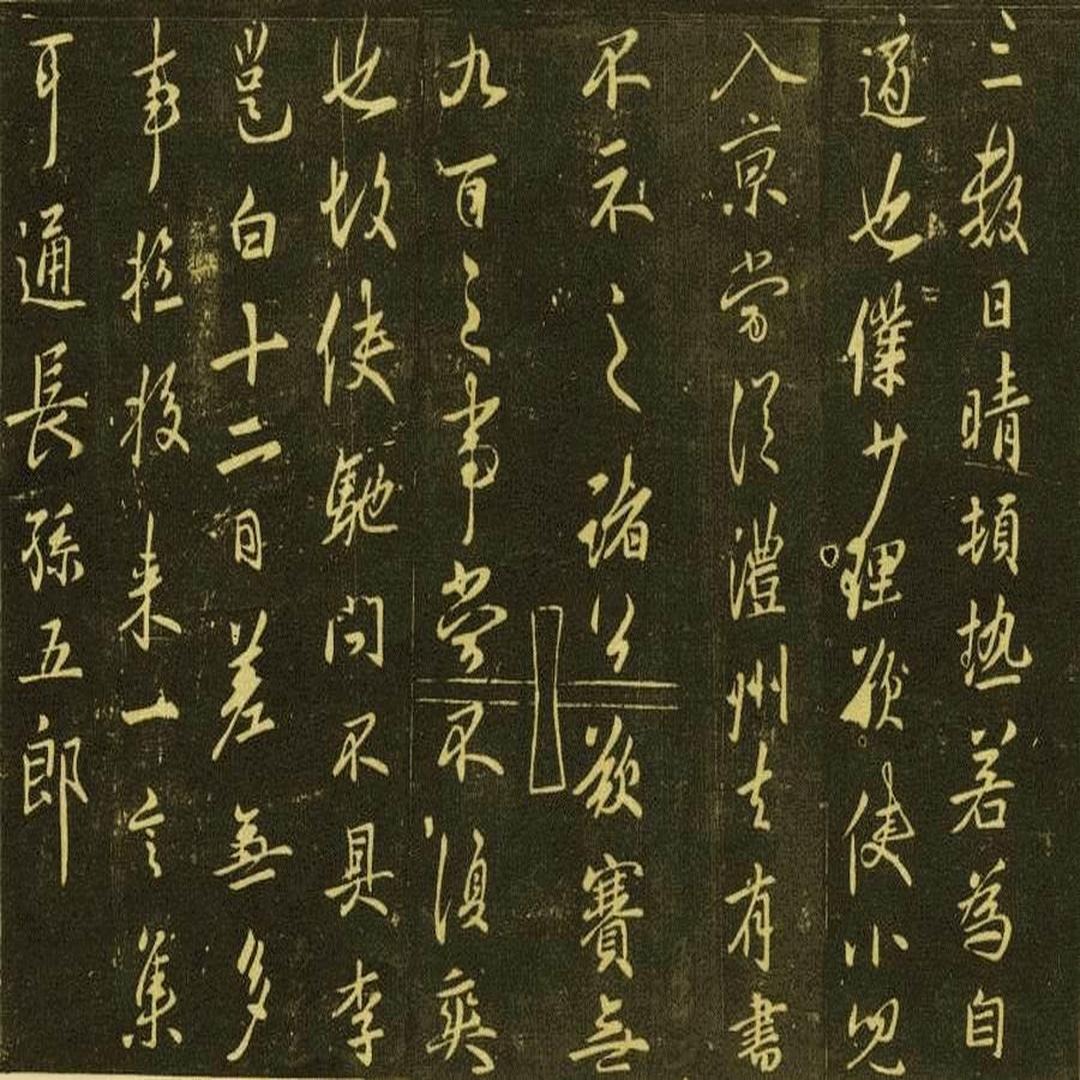 三數日晴頓熱若為自
適也僕少理欲使小兒
入京當從澧州去有書
不示之諸公欲賽無
九百之事當不須爽
也故使馳問不具李
邕白十二日差無多
事来一言集
耳通長孫五郎